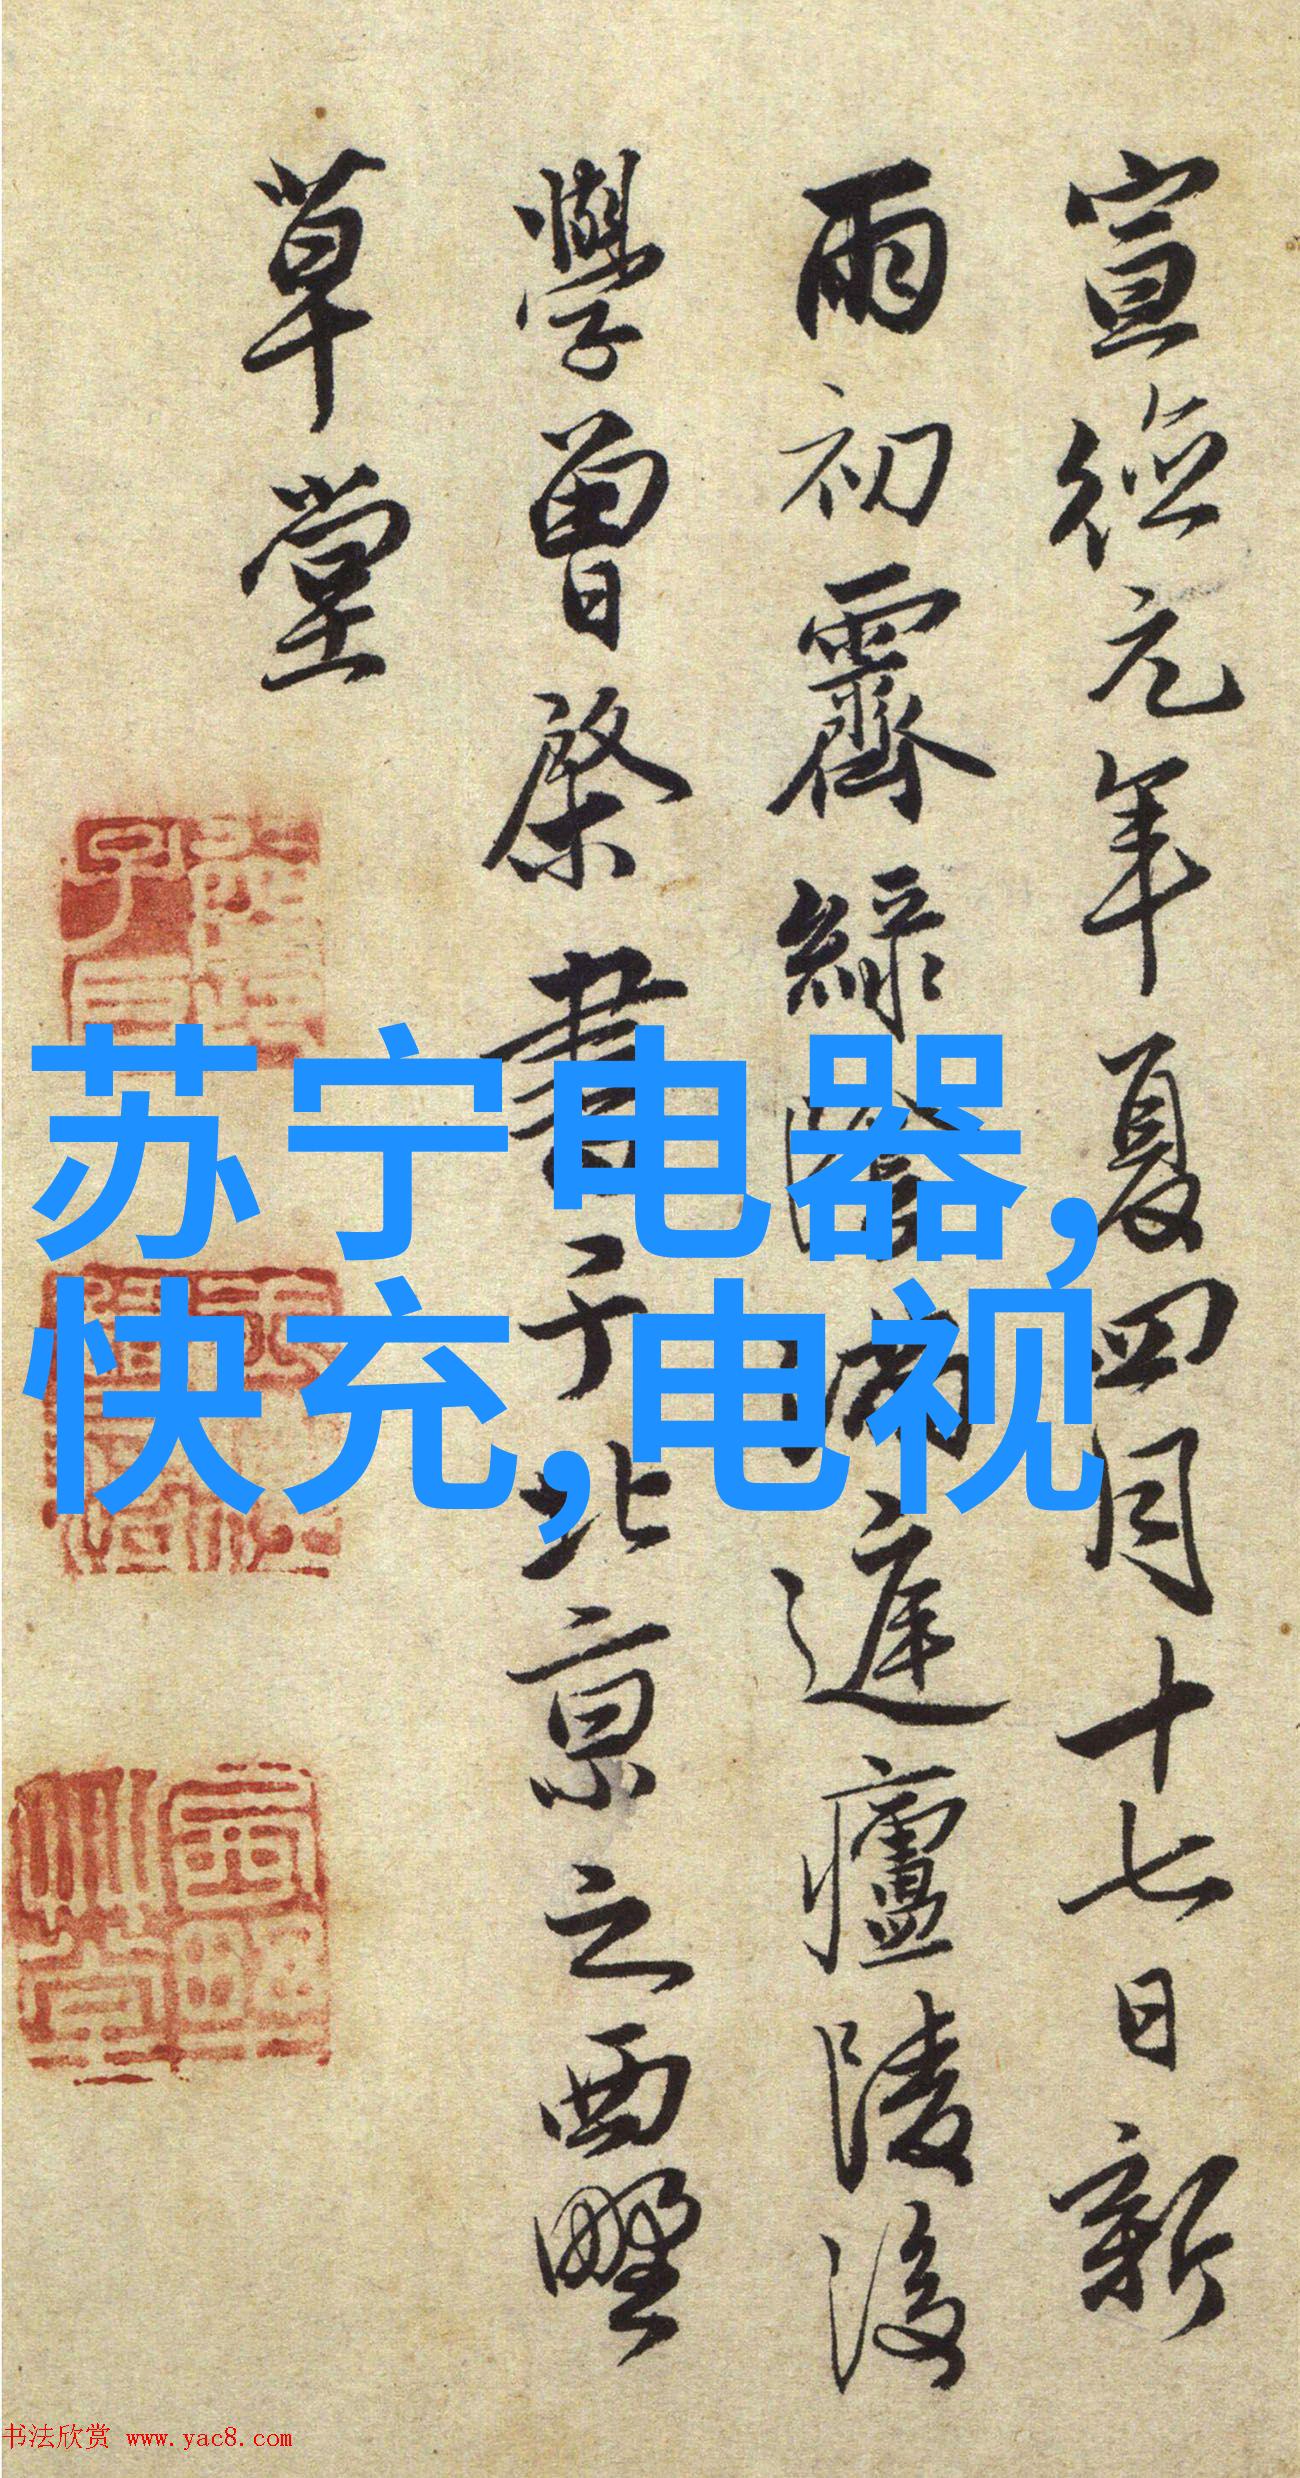 宣德元年夏四月十七日新
雨初霽綠陰滿遲廬陵後
學曾棨書于北京之西墅
草堂
苏宁电器,
快充,电视
书法欣赏 www.yac8.com